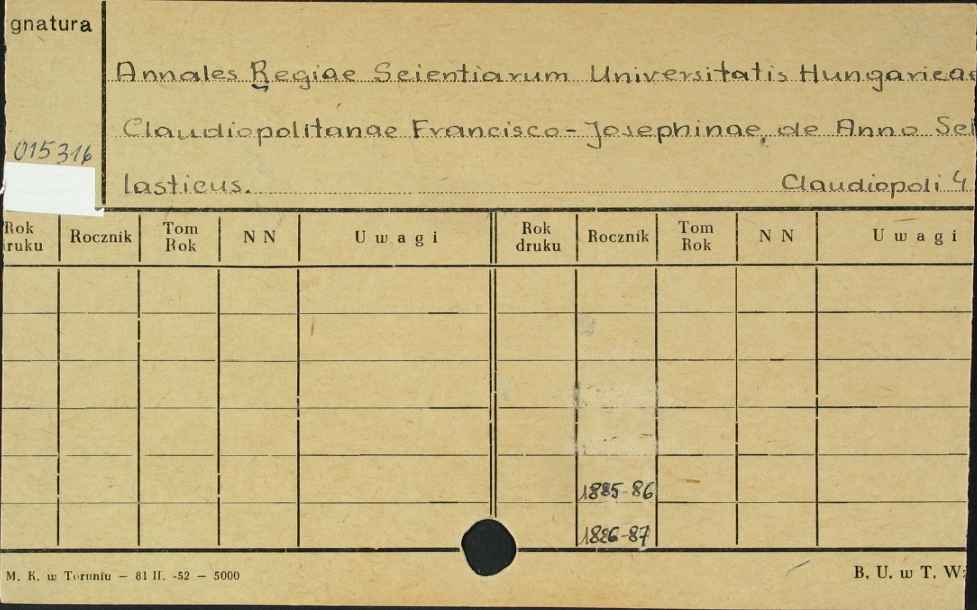 gnatura
Annales Regiae Scientiarum Universitatis Hungaricae
Claudiopolitanae Francisco-Josephinae, de Anno Sci
015316
lasticus. Claudiopoli 4
Rok druku Rocznik Tom Rok N N Uwagi Rok druku Rocznik Tom Rok N N Uwagi
1885-86
1886-87
M. K. w Toruniu — 81 II. -52 — 5000 B. U. w T. W